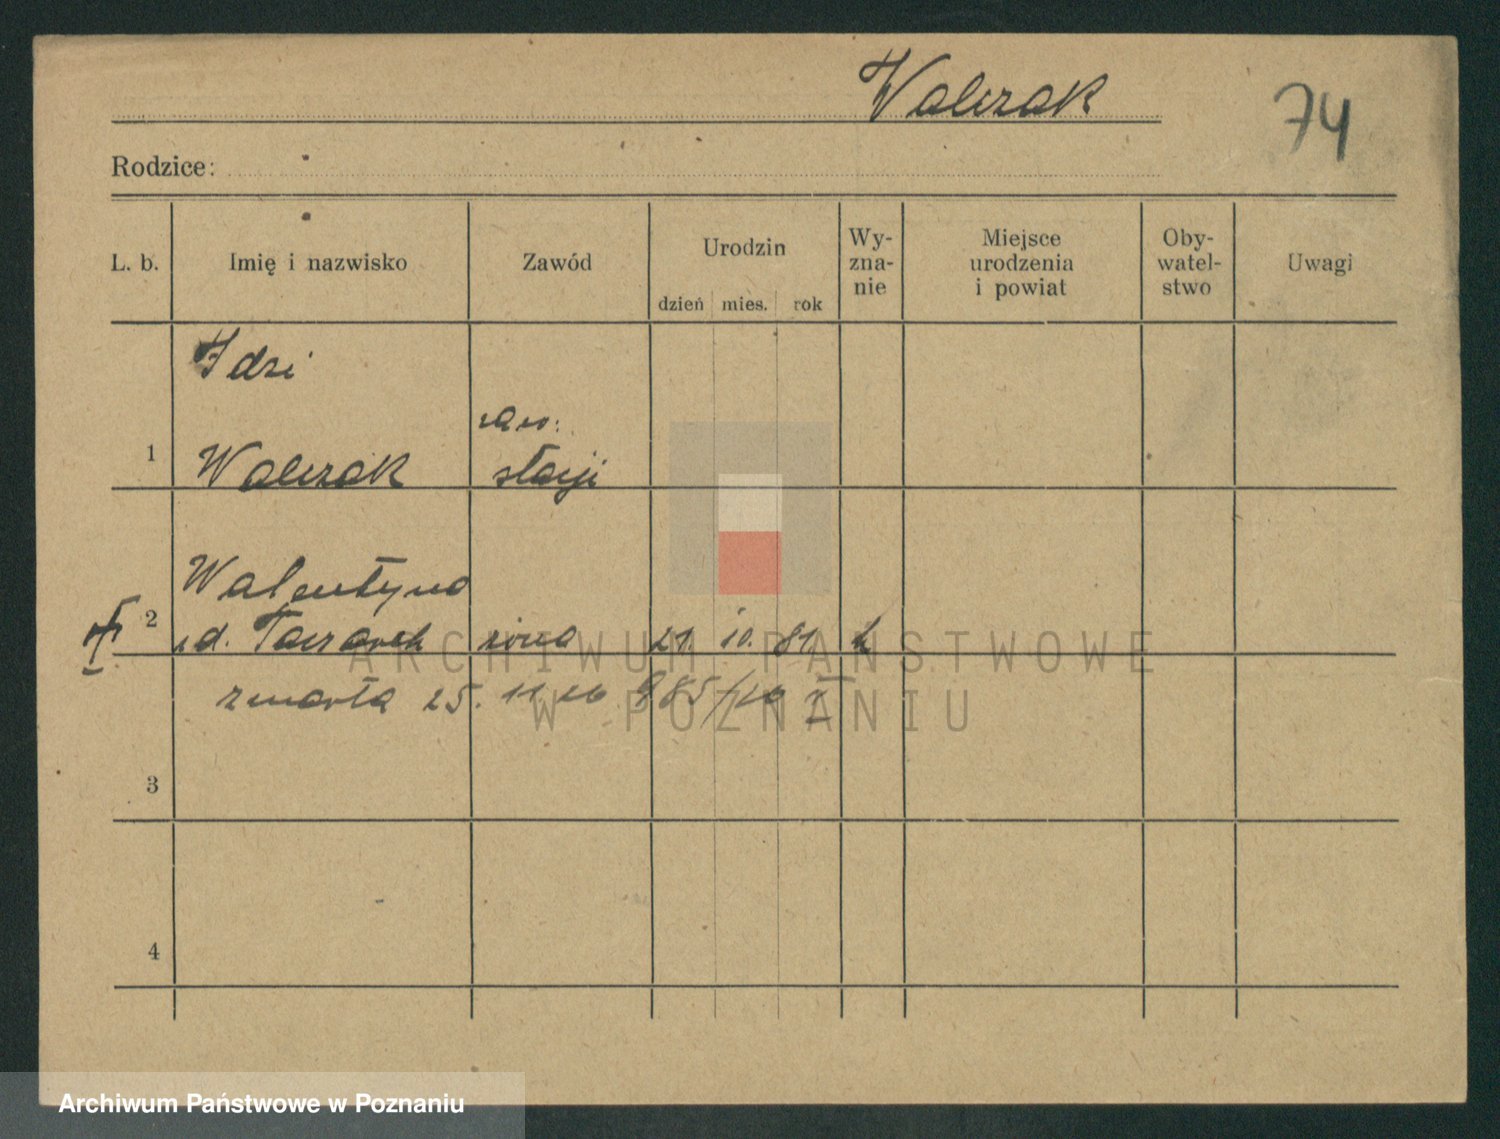 Walczak
74
Rodzice:
L. b.
Imię i nazwisko
Zawód
Urodzin
dzień mies. rok
Wy-
zna-
nie
Miejsce
urodzenia
i powiat
Oby-
watel-
stwo
Uwagi
Idzi
zaw:
1 Walczak stacji
Walentyna
2 zd. Taczarek żona 21. 10. 81. k
zmarła 25. 11 20 985/20 I
3
4
ARCHIWUM PAŃSTWOWE
W POZNANIU
Archiwum Państwowe w Poznaniu